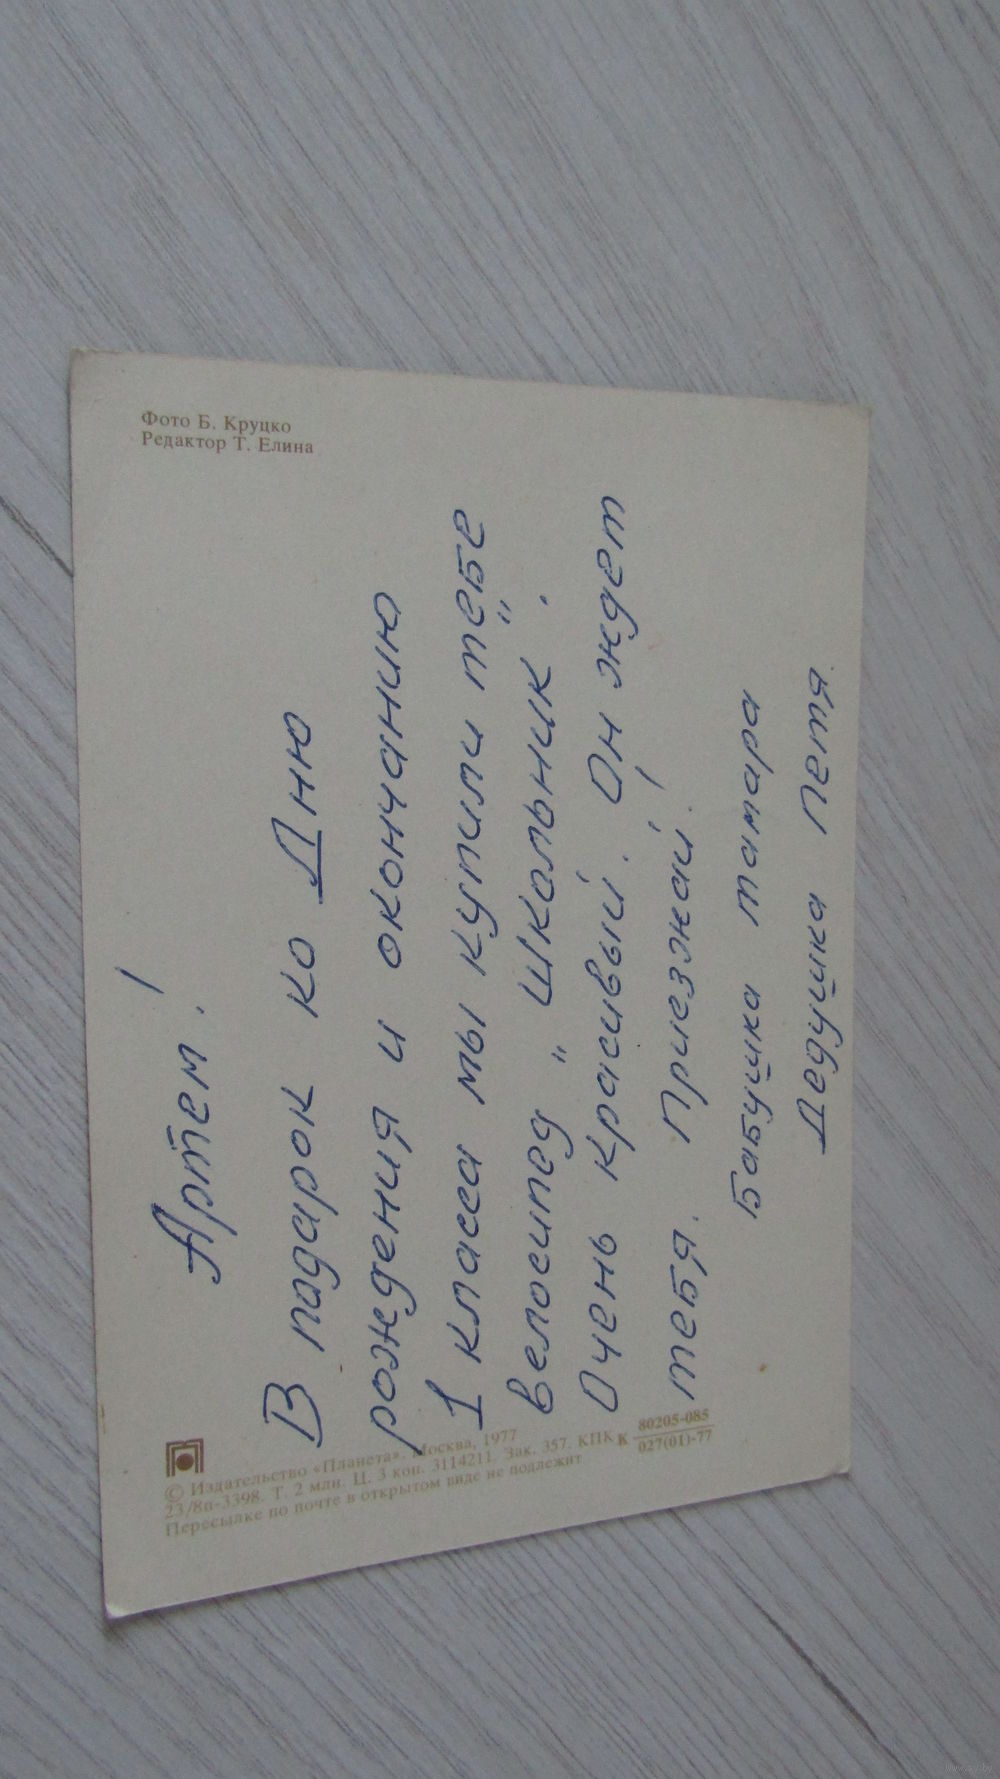 Фото Б. Круцко
Редактор Т. Елина
Артем!
В падарок ко Дню
рождения и окончанию
1 класса мы купили тебе
велосипед „Школьник".
Очень красивый. Он ждет
тебя. Приезжай!
Бабушка тамара
Дедушка Петя.
© Издательство «Планета». Москва, 1977
23/8п-3398. Т. 2 млн. Ц. 3 коп. 3114211. Зак. 357. КПК
Пересылке по почте в открытом виде не подлежит
К 80205-085
027(01)-77